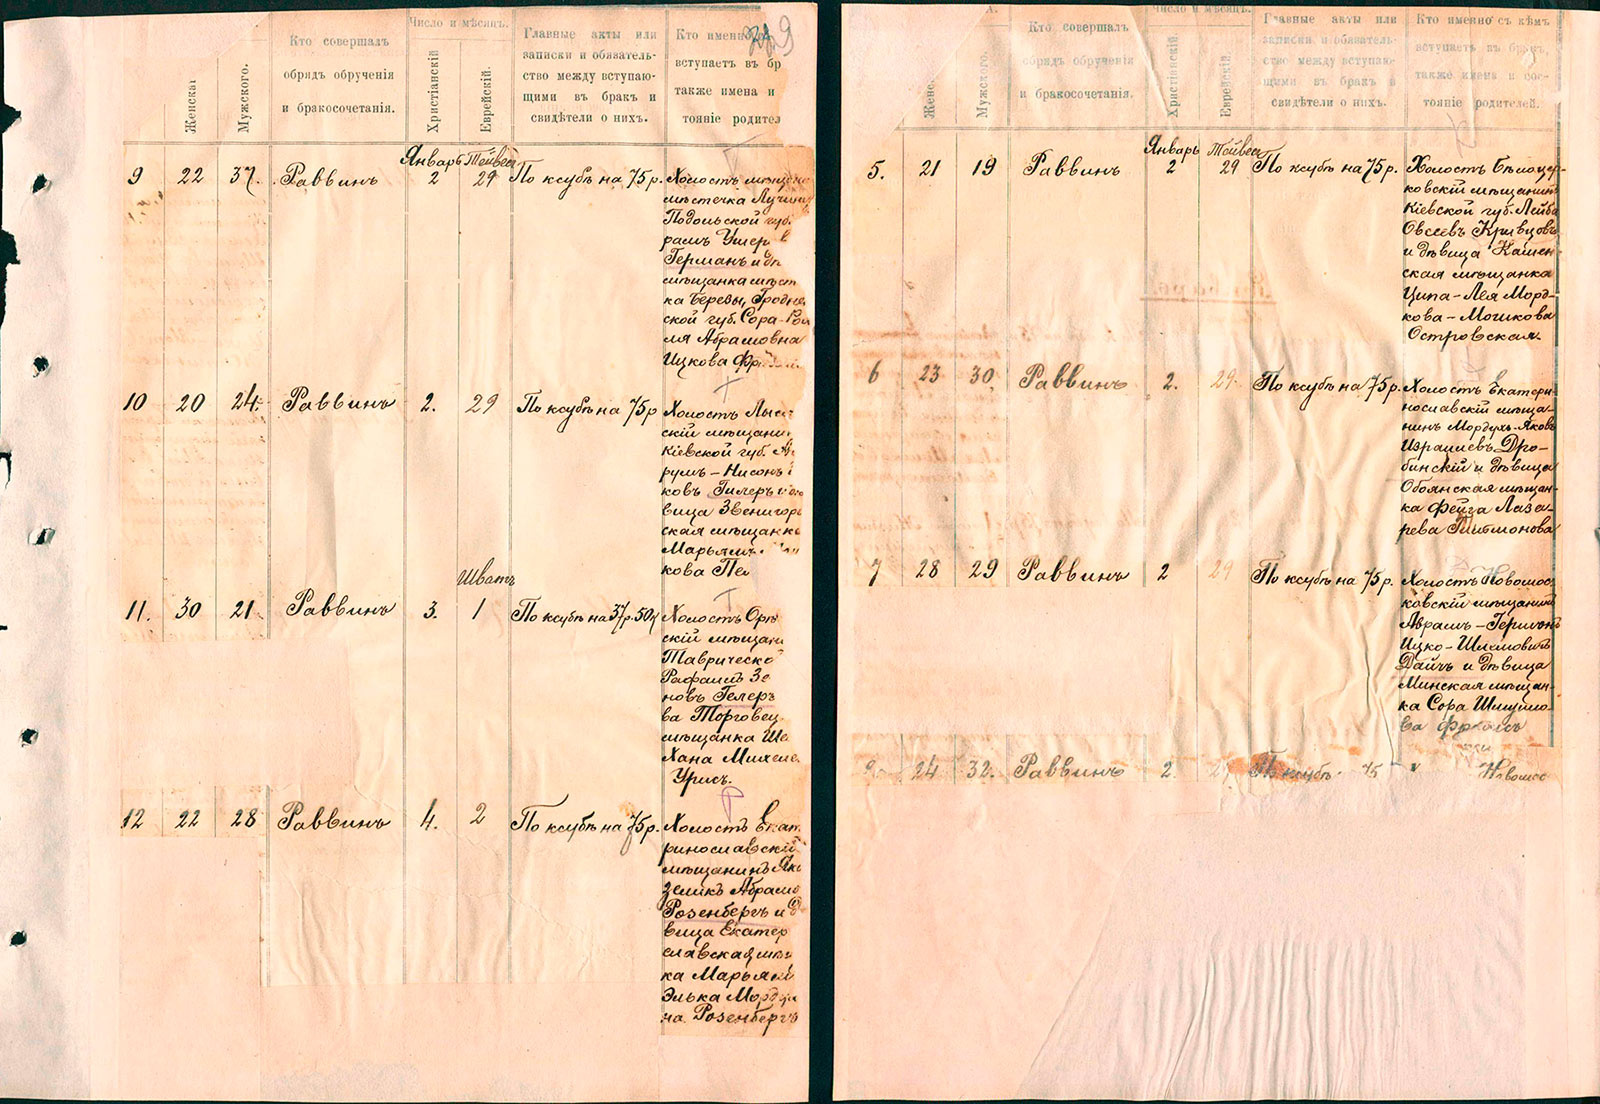 Женска
Мужского.
Кто совершалъ
обрядъ обрученія
и бракосочетанія.
Число и мѣсяцъ.
Христіанскій
Еврейскій.
Главные акты или
записки и обязатель-
ство между вступаю-
щими въ бракъ и
свидѣтели о нихъ.
Кто именно
вступаетъ въ бр
также имена и
тояніе родител
9 22 37. Раввинъ Январь 2 Тейвеса 29 По ксубѣ на 75 р.
Холостъ мѣщан
мѣстечка Лучин
Подольской губ.
рамъ Ушер
Германъ и дѣ
мѣщанка мѣст
ка Березы, Гродне
ской губ. Сора-Рох
ля Абрамовна
Ицкова
10 20 24. Раввинъ 2. 29 По ксубѣ на 75 р
Холостъ Лыс
скій мѣщани
Кіевской губ.
румъ-Нисонъ
ковъ Гилеръ и
вица Звениго
ская мѣщанк
Марьям
кова Пе
11. 30 21. Раввинъ 3. Шватъ 1 По ксубѣ на 37 р. 50 к
Холостъ Орѣ
скій мѣщан
Таврическо
Рафаилъ Зе
новъ Гелеръ
ва Торговец
мѣщанка Ше
Хана Михеле
Урисъ.
12 22 28 Раввинъ 4. 2 По ксубѣ на 75 р.
Холостъ Екат
ринославскій
мѣщанинъ Янк
Зеликъ Абрамо
Розенбергъ и д
вица Екатер
славская мѣщ
ка Марьям
Элька Мордух
на Розенбергъ
Женс
Мужского.
Кто совершалъ
обрядъ обрученія
и бракосочетанія.
Число и мѣсяцъ.
Христіанскій
Еврейскій
Главные акты или
записки и обязатель-
ство между вступаю-
щими въ бракъ и
свидѣтели о нихъ.
Кто именно съ кѣмъ
вступаетъ въ бракъ,
также имена и сос-
тояніе родителей.
5. 21 19 Раввинъ Январь 2 Тейвеса 29 По ксубѣ на 75 р.
Холостъ Бѣлоцер-
ковскій мѣщанинъ
Кіевской губ. Лейба
Овсеевъ Кривцовъ
и дѣвица Каменская
ская мѣщанка
Ципа-Лея Морд-
кова-Мошкова
Островская.
6 23 30. Раввинъ 2. 29. По ксубѣ на 75 р.
Холостъ Екатери-
нославскій мѣща-
нинъ Мордухъ-Яковъ
Израилевъ Дро-
бинскій и дѣвица
Обоянская мѣщан-
ка Фейга Лаза-
рева
7 28 29 Раввинъ 2 29 По ксубѣ на 75 р.
Холостъ Новомос
ковскій мѣщанинъ
Аврамъ-Германъ
Ицко-Шлемовичъ
Дайчъ и дѣвица
Минская мѣщан-
ка Сора Шлиомо-
ва
24 32. Раввинъ 2. 29 По ксубѣ 75 Новомос